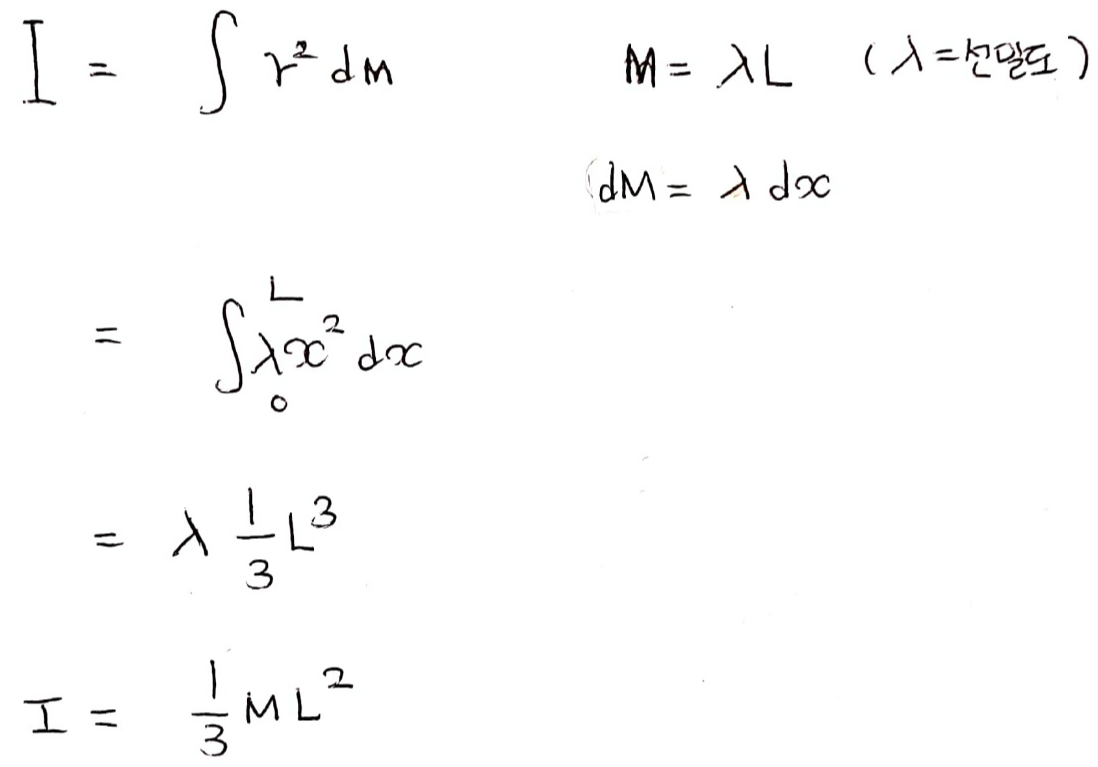 I = ∫ r² dM    M = λL (λ=선밀도)
dM = λ dx
= ∫₀ᴸ λx² dx
= λ 1/3 L³
I = 1/3 ML²